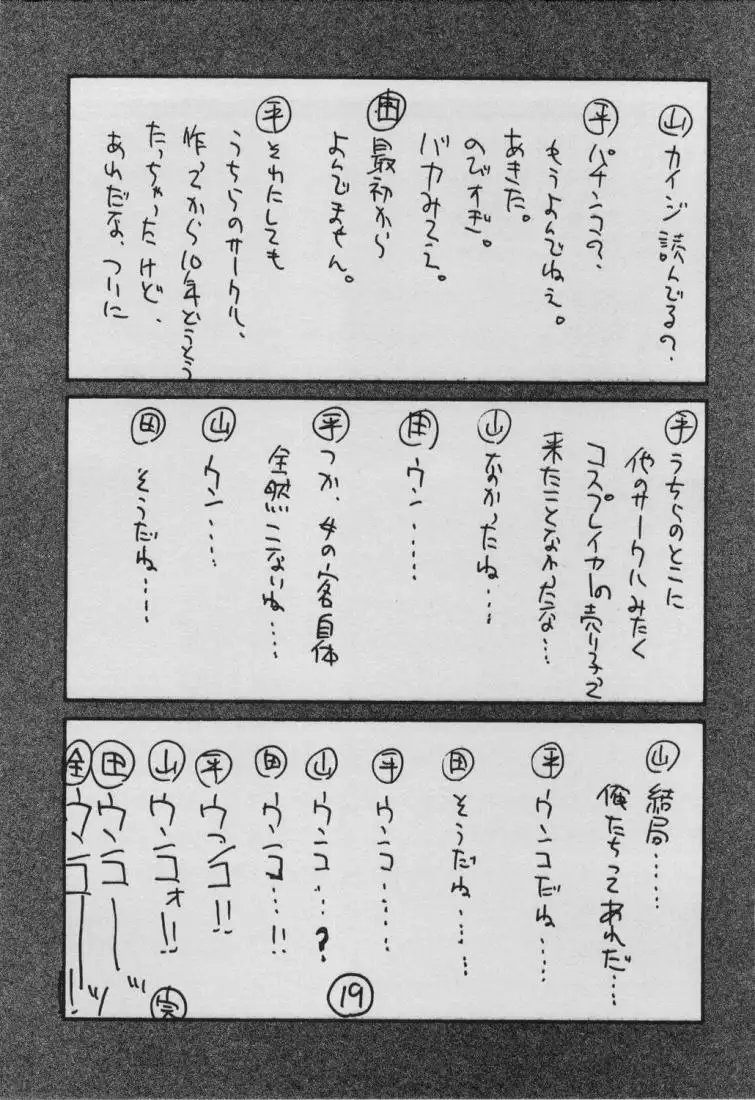 ㊤山 カイジ 読んでるの?
平 パチンコの?
もうよんでねえ。
あきた。
のびすぎ。
バカみてえ。
田 最初から
よんでません。
平 それにしても
うちらのサークル、
作ってから10年どうそう
たっちゃったけど、
あれだな、ついに
平 うちらのとこに
他のサークルみたく
コスプレイヤーの売り子って
来たことなかったな…
山 なかったね…
田 ウン……
平 つか、女の客自体
全然こないね……
山 ウン……
田 そうだね……
山 結局……
俺たちってあれだ…
平 ウンコだね……
田 そうだね……
平 ウンコ……
山 ウンコ…?
田 ウンコ…!!
平 ウンコ!!
山 ウンコォ!!
田 ウンコーッ
全 ウンコーッ!
完
19